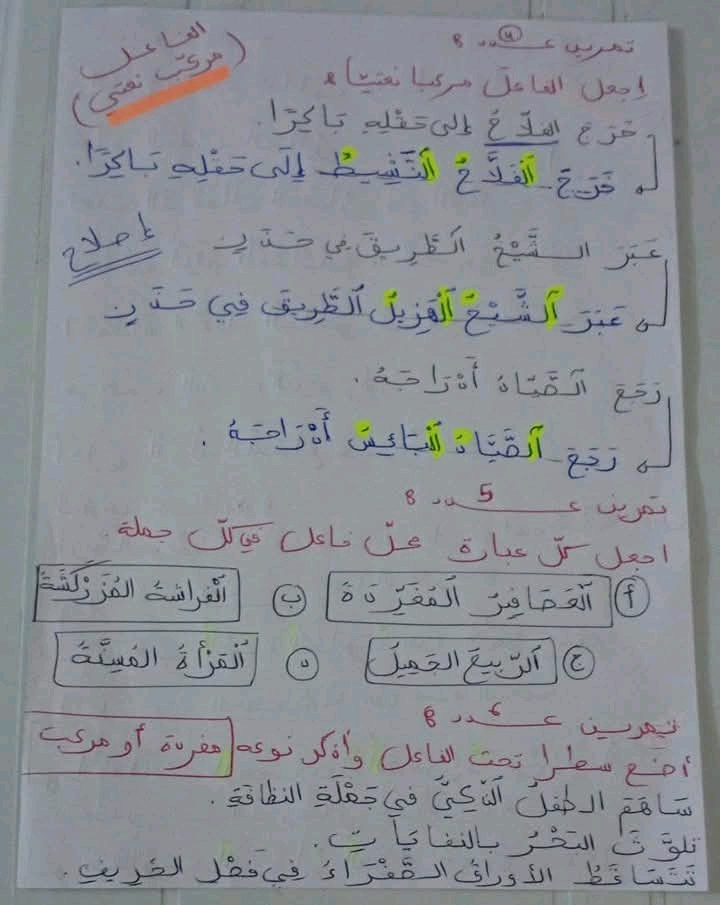 تمرين عـــ4ـــدد 8
(الفاعل مركّب نعتي)
إجعل الفاعل مركبا نعتيا 8
خرج الفلاّحُ إلى حقْلِهِ بَاكِرًا.
خَرَجَ ٱلْفَلَّاحُ ٱلنَّشِيطُ إِلَى حَقْلِهِ بَاكِرًا.
عَبَرَ الشَّيْخُ ٱلطَّرِيقَ في حَذَرٍ
إصلاح
عَبَرَ ٱلشَّيْخُ ٱلْهَزِيلُ ٱلطَّرِيقَ فِي حَذَرٍ
رَجَعَ ٱلصَّيَّادُ أَدْرَاجَهُ.
رَجَعَ ٱلصَّيَّادُ ٱلْبَائِسُ أَدْرَاجَهُ.
تمرين عـــ5ـــدد 8
اجعل كلّ عبارة محلّ فاعل في كلّ جملة.
أ ٱلْعَصَافِيرُ ٱلْمُغَرِّدَةُ ب ٱلْفراشةُ المُزَرْكَشَةُ
ج ٱلرّبيعُ الجَمِيلُ د ٱلْمَرْأَةُ المُسِنَّةُ
تمرين عـــ6ـــدد 8
أضع سطرا تحت الفاعل وأذكر نوعه مفردة أو مركب
سَاهَمَ الطفلُ ٱلذّكِيُّ في حَمْلَةِ النظافةِ.
تلوَّثَ البَحْرُ بالنفاياتِ.
تَتَسَاقَطُ الأوراقُ الصَّفْرَاءُ فِي فَصْلِ الخَرِيفِ.